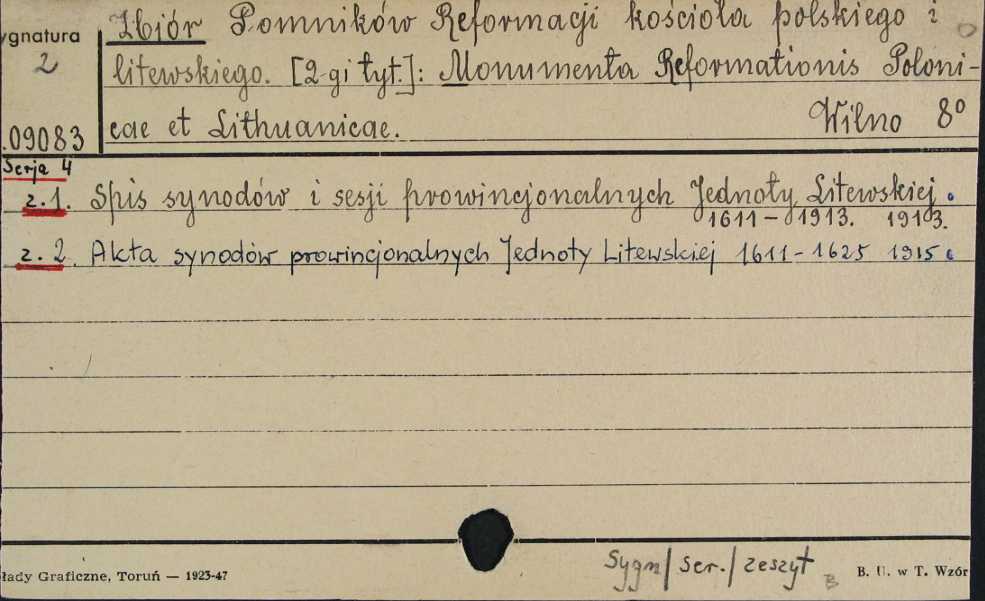 ygnatura
2
.09083
Zbiór Pomników Reformacji kościoła polskiego i
litewskiego. [2-gi tyt.]: Monumenta Reformationis Poloni-
cae et Lithuanicae. Wilno 8°
Serja 4
z.1. Spis synodów i sesji prowincjonalnych Jednoty Litewskiej.
1611-1913. 1913.
z. 2. Akta synodów prowincjonalnych Jednoty Litewskiej 1611-1625 1915.
Sygn/ ser./ zeszyt
B
łady Graficzne, Toruń — 1923-47
B. U. w T. Wzór